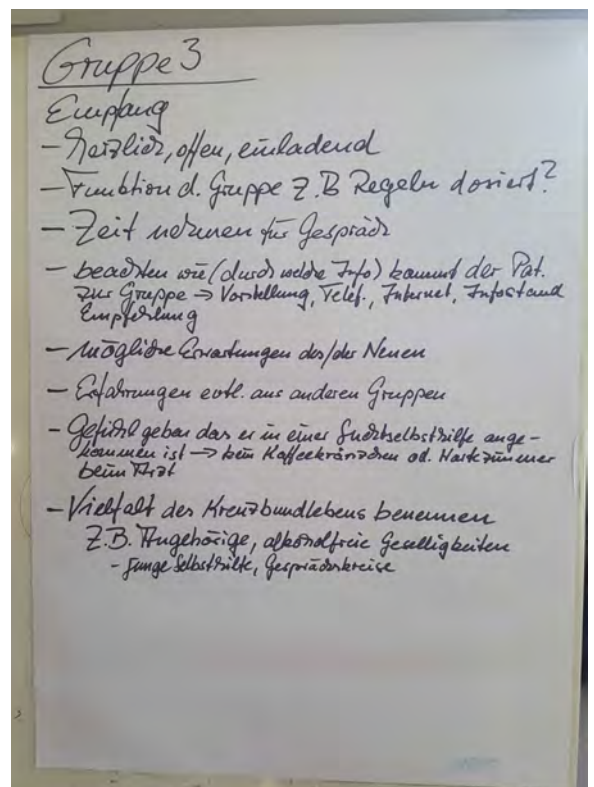 Gruppe 3
Empfang
- Herzlich, offen, einladend
- Funktion d. Gruppe z.B Regeln dosiert?
- Zeit nehmen für Gespräch
- beachten wie (durch welche Info) kommt der Pat.
zur Gruppe → Vorstellung, Telef., Internet, Infostand
Empfehlung
- mögliche Erwartungen des/der Neuen
- Erfahrungen evtl. aus anderen Gruppen
- Gefühl geben das er in einer Suchtselbsthilfe ange-
kommen ist → kein Kaffeekränzchen od. Wartezimmer
beim Arzt
- Vielfalt des Kreuzbundlebens benennen
Z.B. Angehörige, alkoholfreie Geselligkeiten
- Junge Selbsthilfe, Gesprächskreise